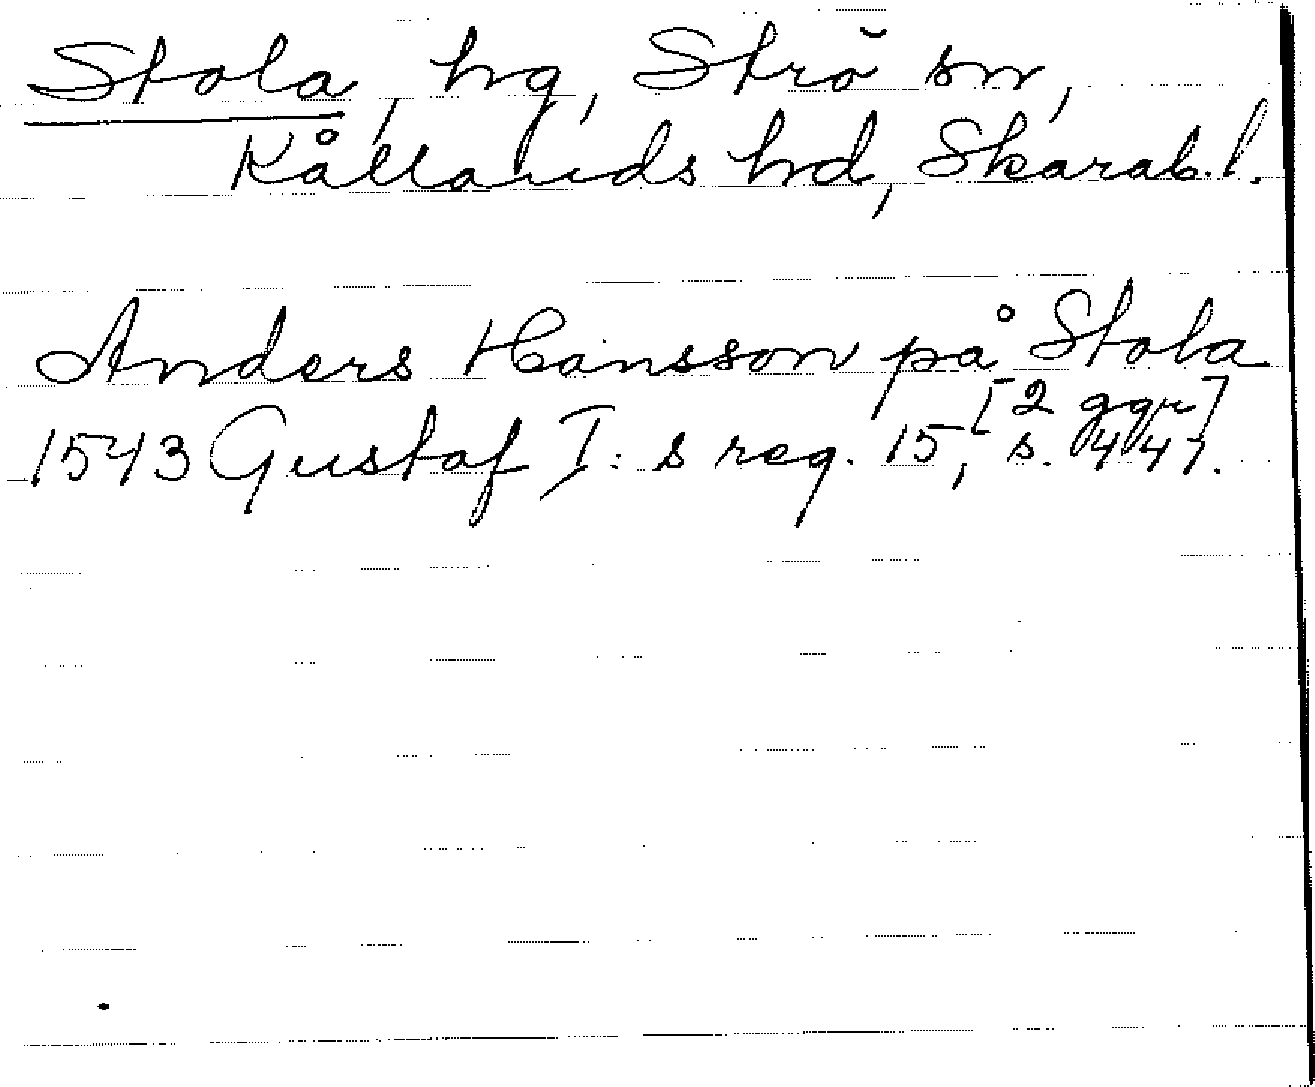 Stola, hg, Strö sn,
Kållands hd, Skarab. l.
Anders Hansson på Stola
[2 ggr]
1543 Gustaf I:s reg. 15, s. 447.